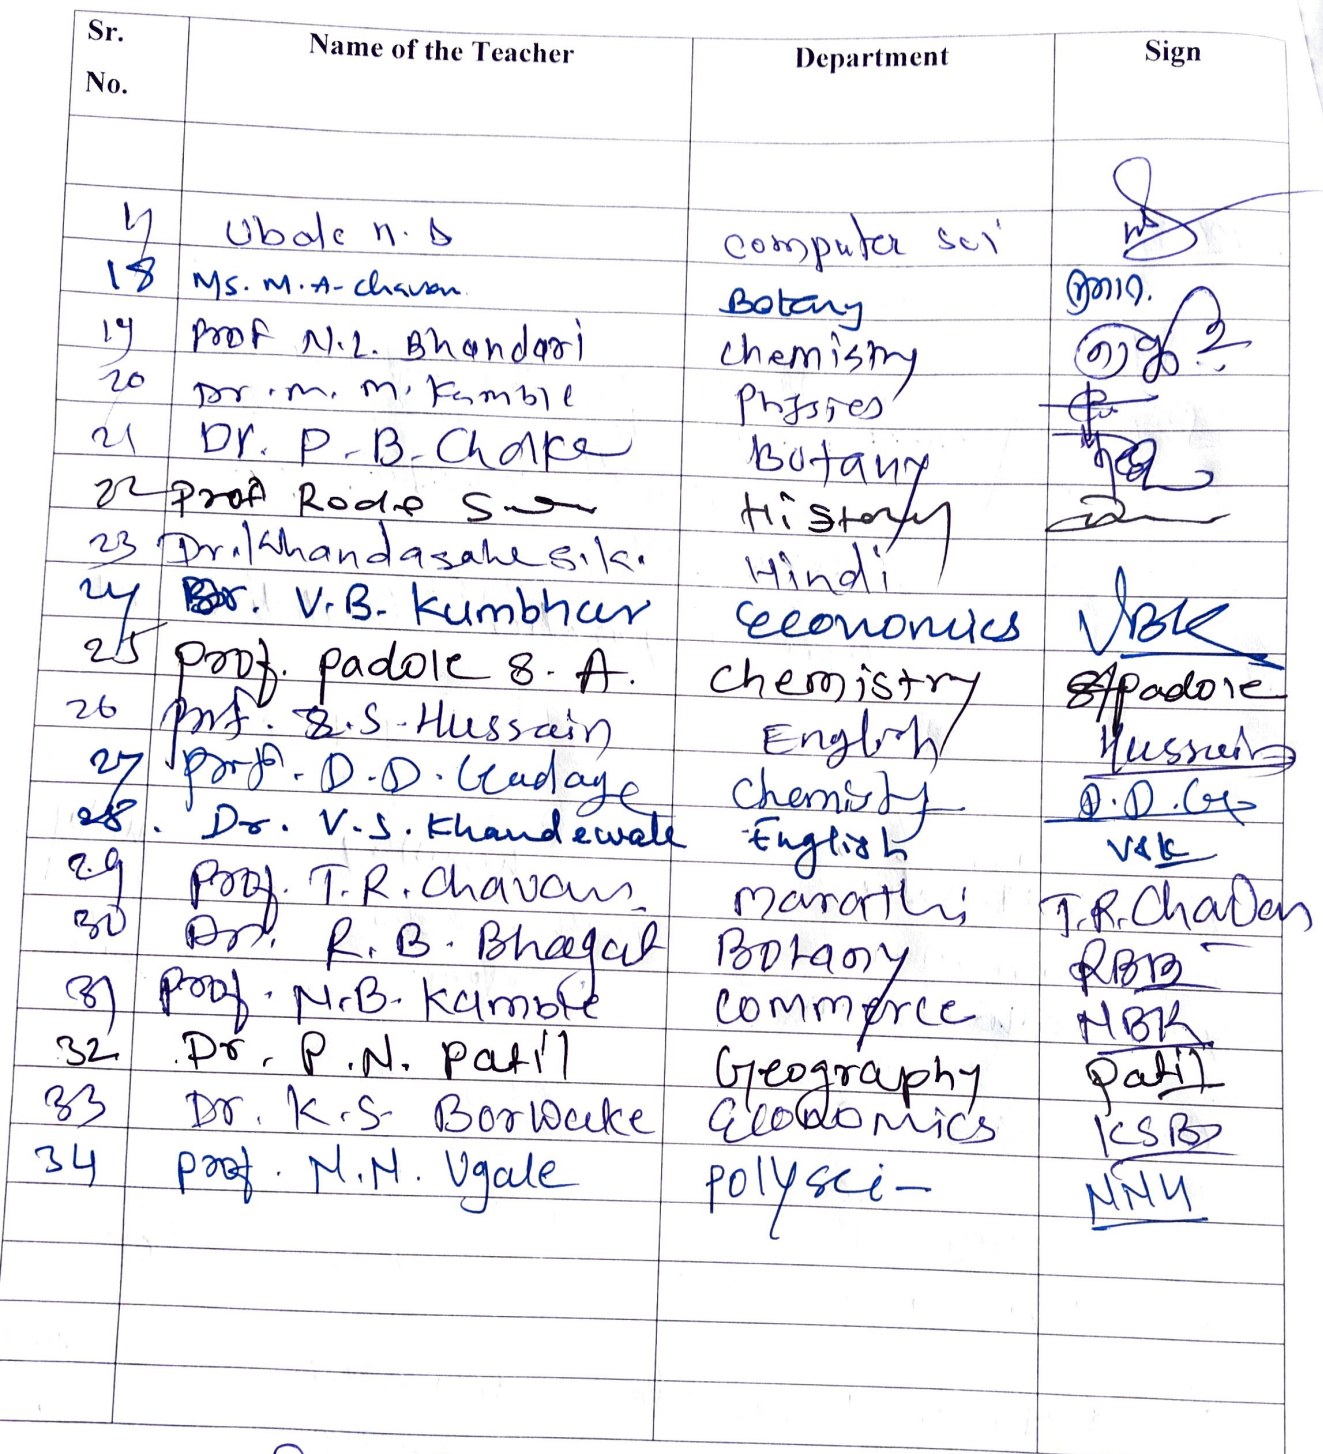 Sr. No. Name of the Teacher Department Sign
Ubale n. S computer sci
18 Ms. M. A- chavan Botany
19 Prof N.L. Bhandari chemistry
20 Dr. m. m. Kamble Physics
21 Dr. P. B. Chalke Botany
22 Prof Rode S History
23 Dr. Khandasahe S.k. Hindi
24 Dr. V. B. Kumbhar Economics VBK
25 Prof. padole S. A. chemistry SApadole
26 Prof. S. S. Hussain English Hussain
27 Prof. D. D. Gadage Chemisty
28. Dr. V. S. Khandewale English VSK
29 Prof. T. R. Chavan marathi T.R. Chavan
30 Dr. R. B. Bhagat Botany RBB
31 Prof. N. B. Kamble Commerce NBK
32 Dr. P. N. Patil Geography Patil
33 Dr. K. S. Borwake Economics KSB
34 Prof. N. N. Ugale Poly sci - NNU